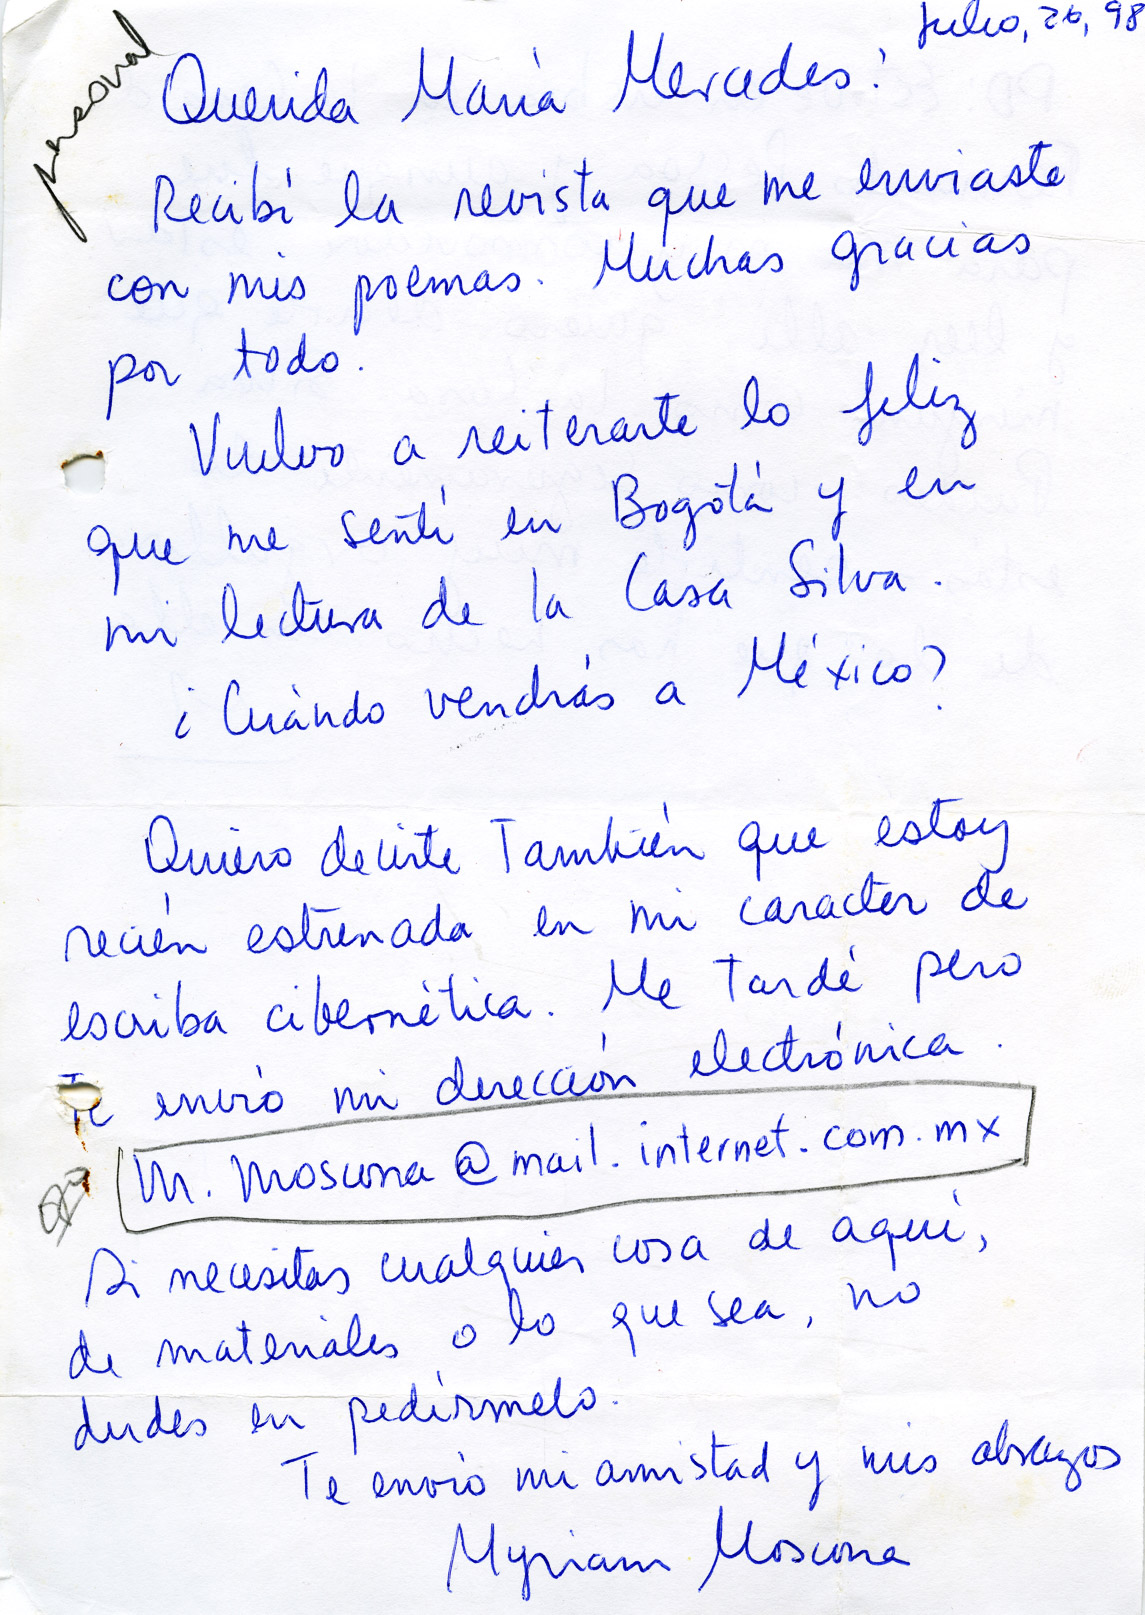 Julio, 26, 98
personal
Querida María Mercedes:
Recibí la revista que me enviaste
con mis poemas. Muchas gracias
por todo.
Vuelvo a reiterarte lo feliz
que me sentí en Bogotá y en
mi lectura de la Casa Silva.
¿Cuándo vendrás a México?
Quiero decirte también que estoy
recién estrenada en mi caracter de
escriba cibernética. Me tardé pero
te envío mi dirección electrónica.
M.Moscona@mail.internet.com.mx
Si necesitas cualquier cosa de aquí,
de materiales o lo que sea, no
dudes en pedírmelo.
Te envío mi amistad y mis abrazos
Myriam Moscona